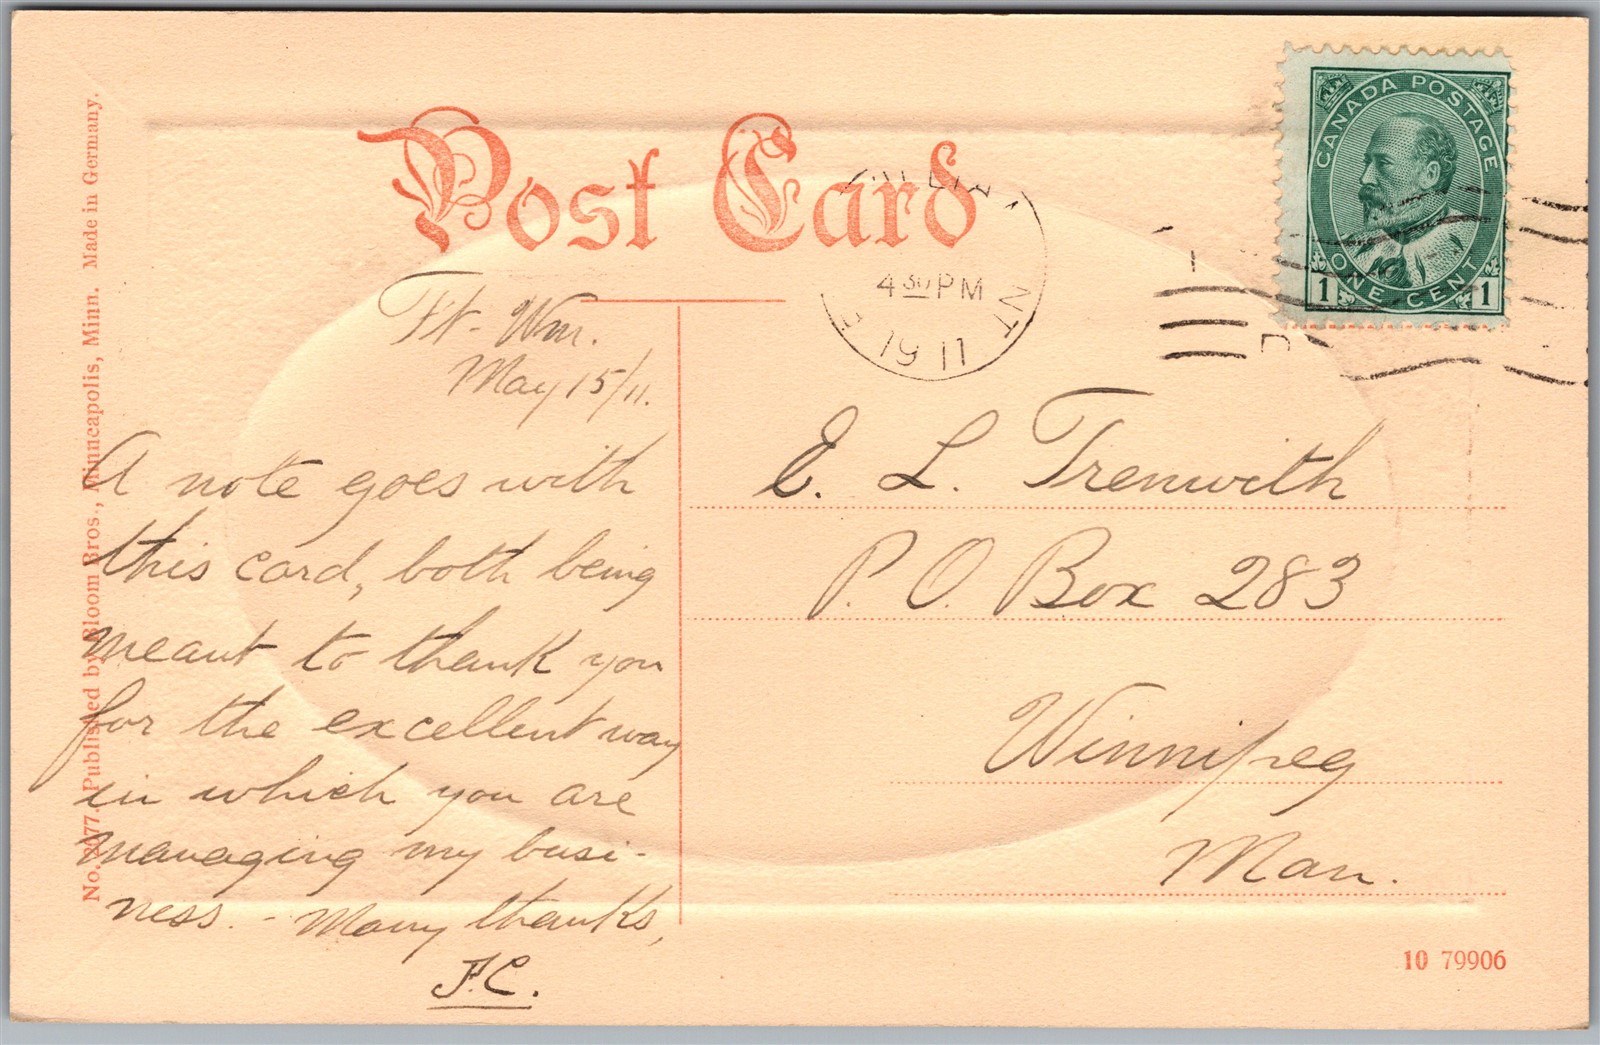 Post Card
No. 2077. Published by Bloom Bros., Minneapolis, Minn. Made in Germany.
CANADA POSTAGE
ONE CENT
1 1
4 30 PM
19 11
NT
Ft. Wm.
May 15/11.
A note goes with
this card, both being
meant to thank you
for the excellent way
in which you are
managing my busi-
ness. - Many thanks,
F.C.
E. L. Trenwith
P. O. Box 283
Winnipeg
Man.
10 79906